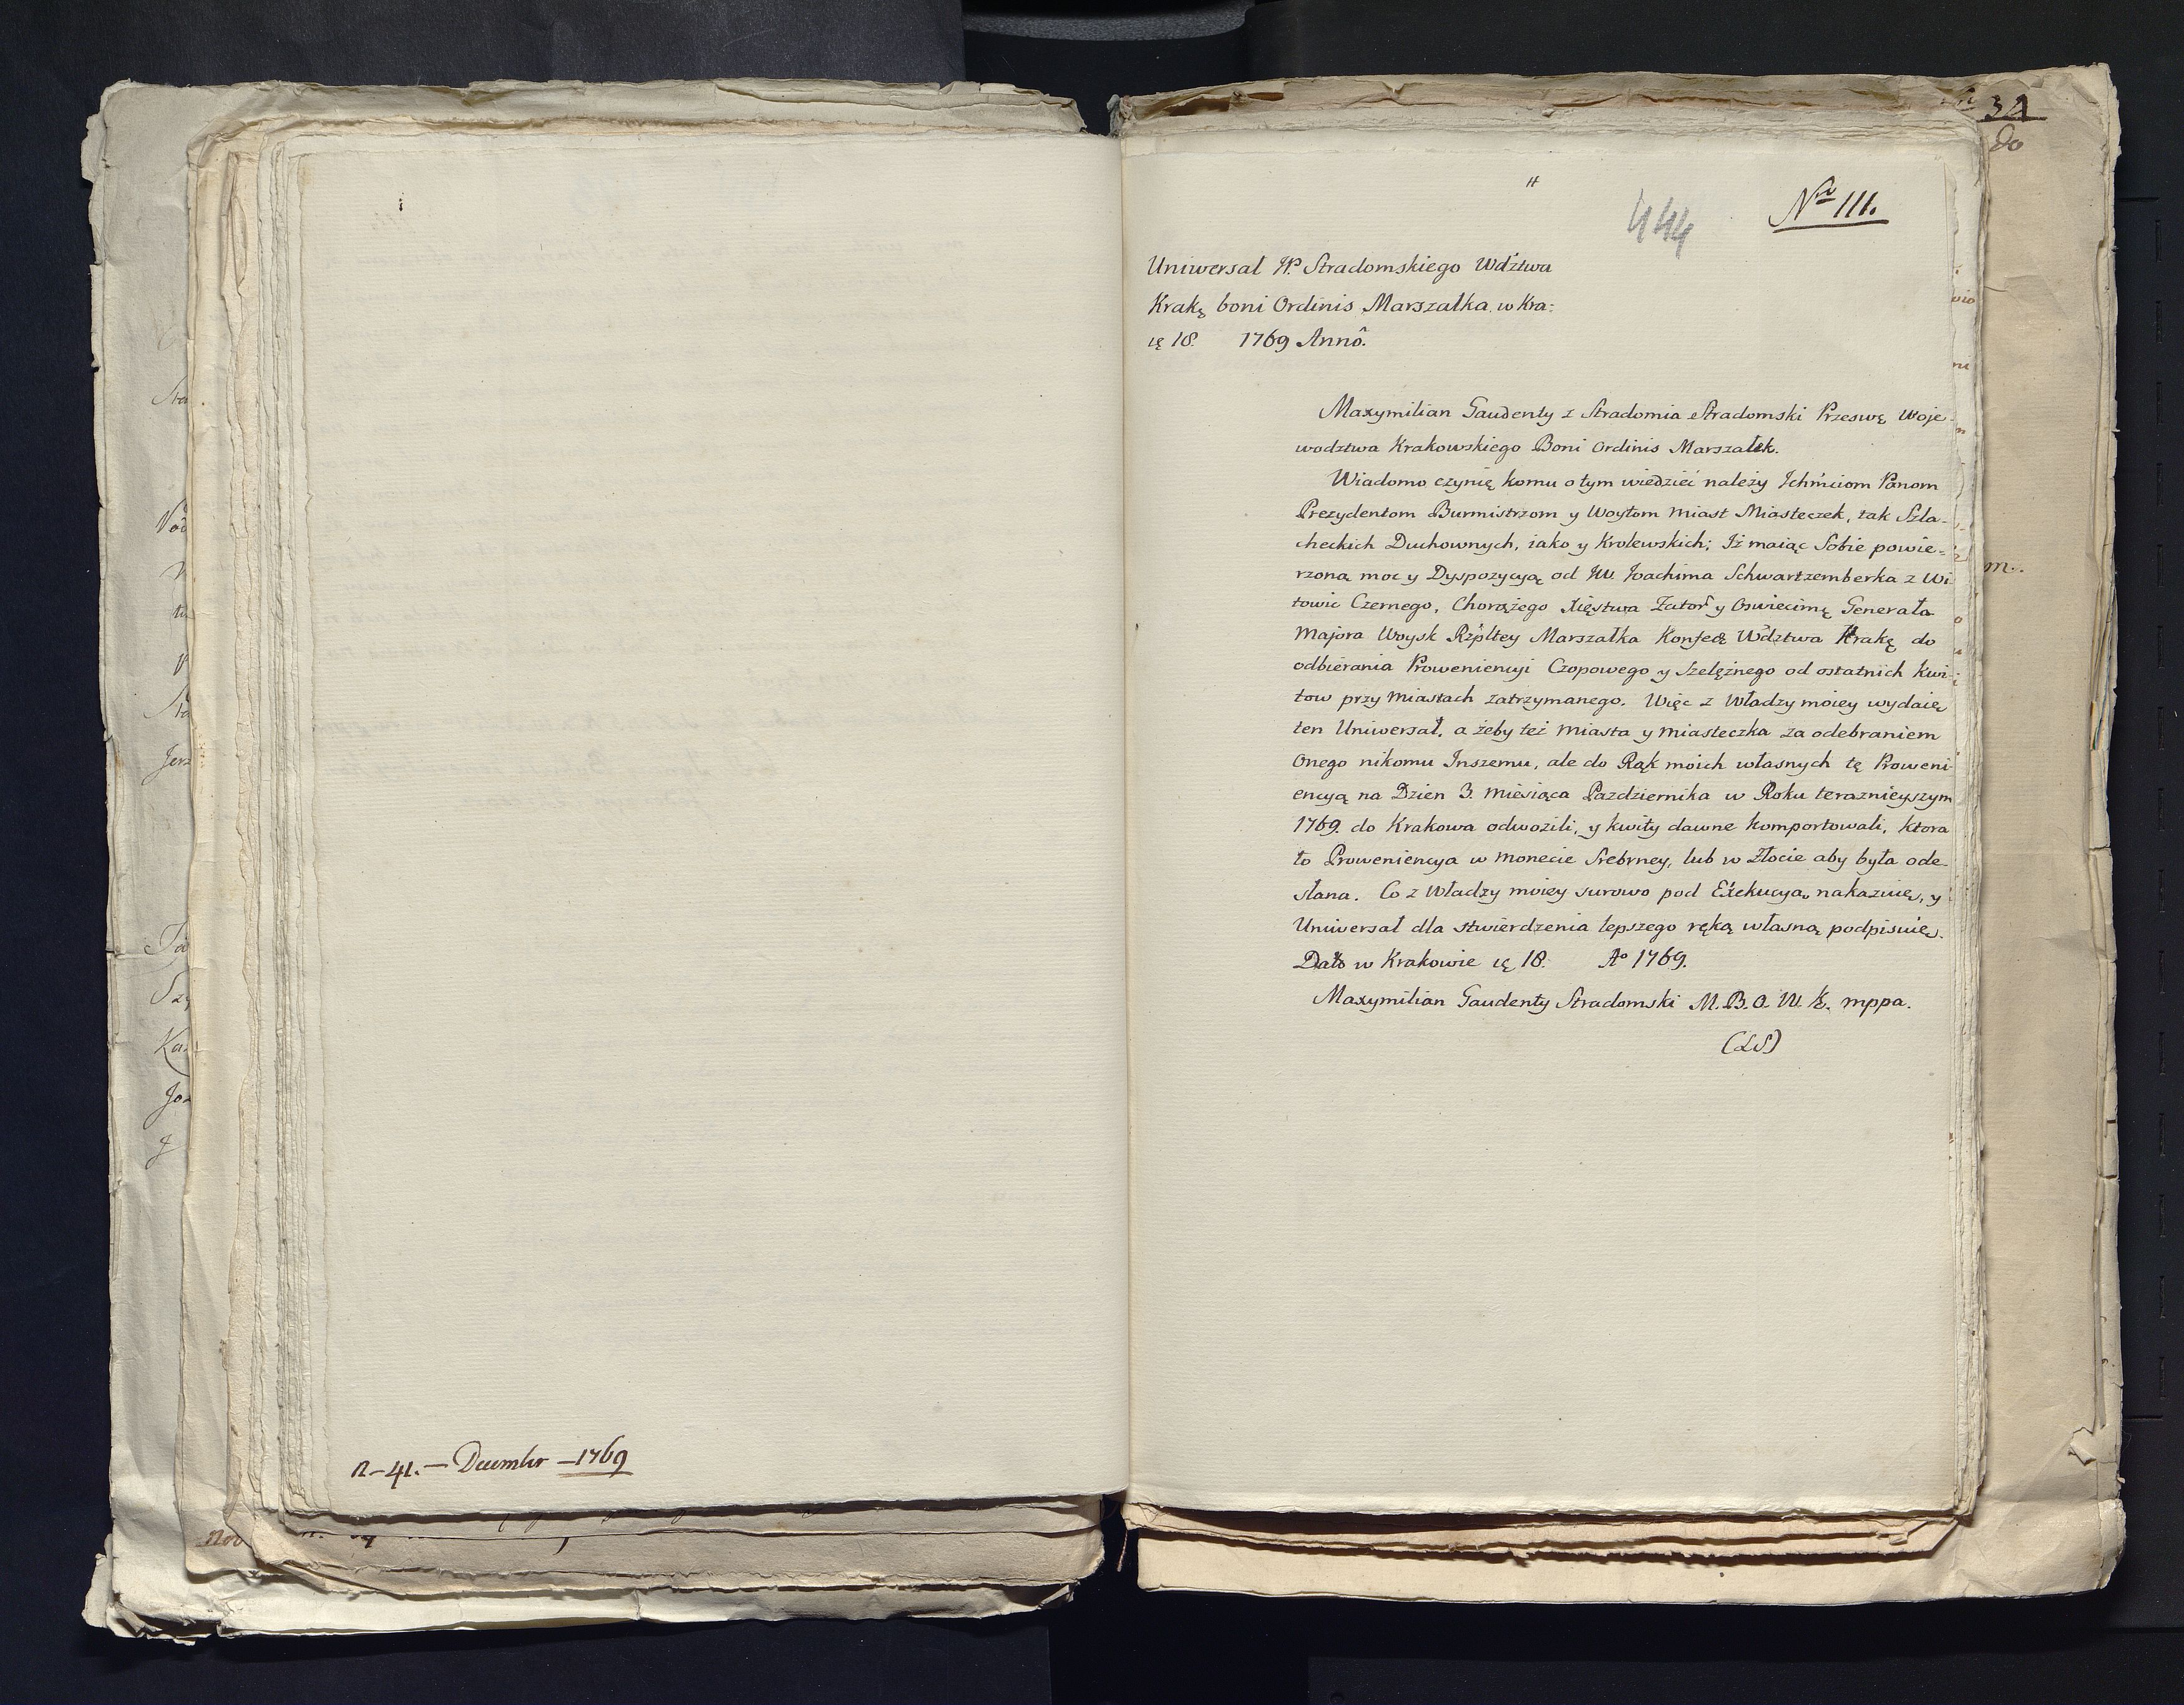 n–41.– Decembr –1769
444
Nro 111.
Uniwersał JP. Stradomskiego Wdztwa
Krakę boni Ordinis Marszałka w Kra:
ię 18. 1769 Annô.
Maxymilian Gaudenty z Stradomia Stradomski Przeswę Woje-
wodztwa Krakowskiego Boni Ordinis Marszałek.
Wiadomo czynię komu o tym wiedzieć należy Ichmciom Panom
Prezydentom Burmistrzom y Woytom Miast Miasteczek, tak Szla-
checkich Duchownych, iako y Krolewskich; Iż maiąc Sobie powie-
rzoną moc y Dyspozycyą od JW. Joachima Schwartzemberka z Wi
towic Czernego, Chorążego Xięstwa Zator y Oswiecimę Generała
Majora Woysk Rzpltey Marszałka Konfedę Wdztwa Krakę do
odbierania Prowenięcyi Czopowego y Szelężnego od ostatnich Kwi-
tow przy Miastach zatrzymanego. Więc z Władzy moiey wydaię
ten Uniwersał, a żeby też Miasta y Miasteczka za odebraniem
onego nikomu Inszemu, ale do Rąk moich własnych tę Proweni-
encyą na Dzien 3. Miesiąca Pazdziernika w Roku terazniejszym
1769. do Krakowa odwozili, y kwity dawne komportowali, ktora
to Proweniencya w monecie Srebrney, lub w Złocie aby była ode-
słana. Co z Władzy moiey surowo pod Exekucyą nakazuię, y
Uniwersał dla stwierdzenia lepszego ręką własną podpisuię.
Dato w Krakowie ię 18. Ao 1769.
Maxymilian Gaudenty Stradomski M. B. O. W. K. mppa.
(LS)